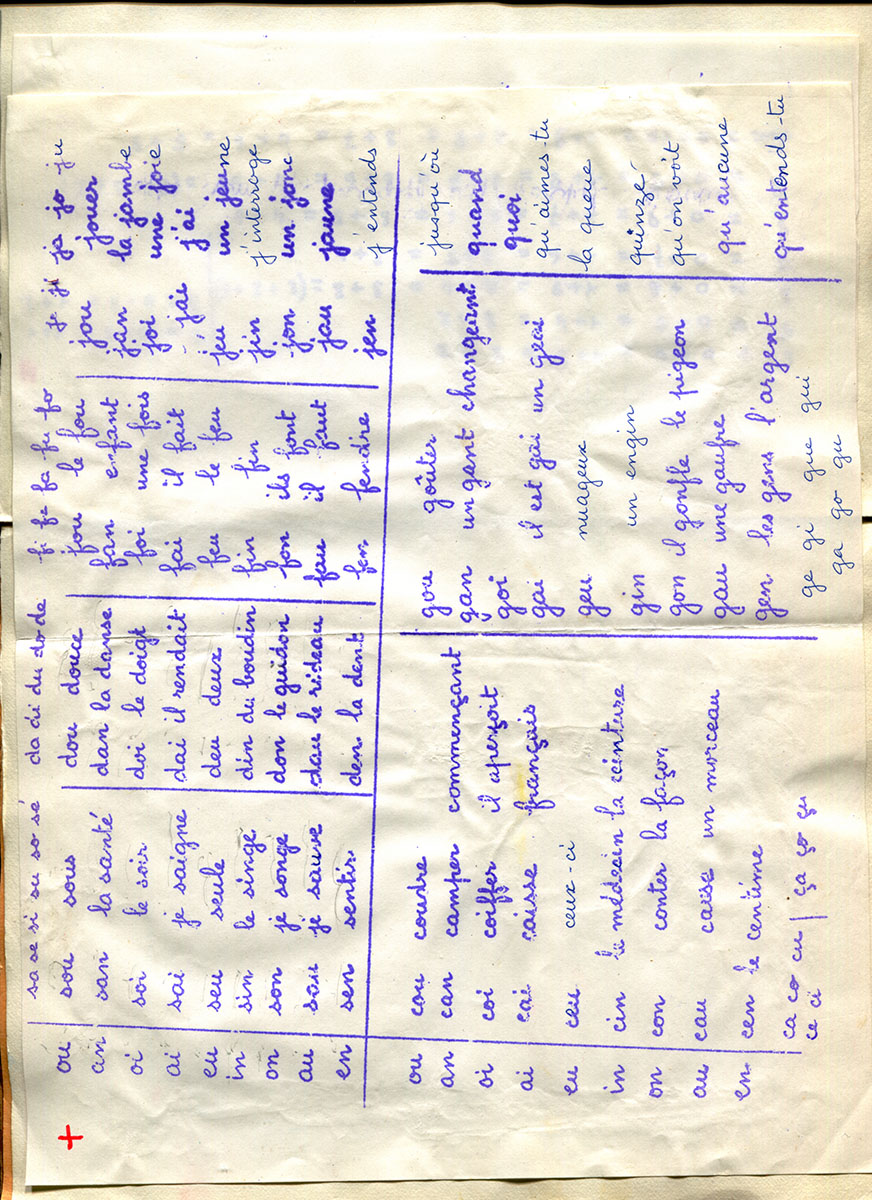 sa se si su so sé da di du do de fi fe fa fu fo je ji ja jo ju
ou sou sous dou douce fou le fou jou jouer
an san la santé dan la danse fan enfant jan la jambe
oi soi le soir doi le doigt foi une fois joi une joie
ai sai je saigne dai il rendait fai il fait jai j'ai
eu seu seule deu deux feu le feu jeu un jeune
in sin le singe din du boudin fin fin jin j'interroge
on son je songe don le guidon fon ils font jon un jonc
au sau je sauve dau le rideau fau il faut jau jaune
en sen sentir den la dent fen fendre jen j'entends
ou cou coudre gou goûter jusqu'où
an can camper commençant gan un gant changeant quand
oi coi coiffer il aperçoit goi quoi
ai cai caisse français gai il est gai un geai qu'aimes-tu
eu ceu ceux-ci geu nuageux la queue
in cin le médecin la ceinture gin un engin quinze
on con conter la façon gon il gonfle le pigeon qu'on voit
au cau cause un morceau gau une gaufre qu'aucune
en cen le centime gen les gens l'argent qu'entends-tu
ca co cu ça ço çu ge gi gue gui
ce ci ga go gu